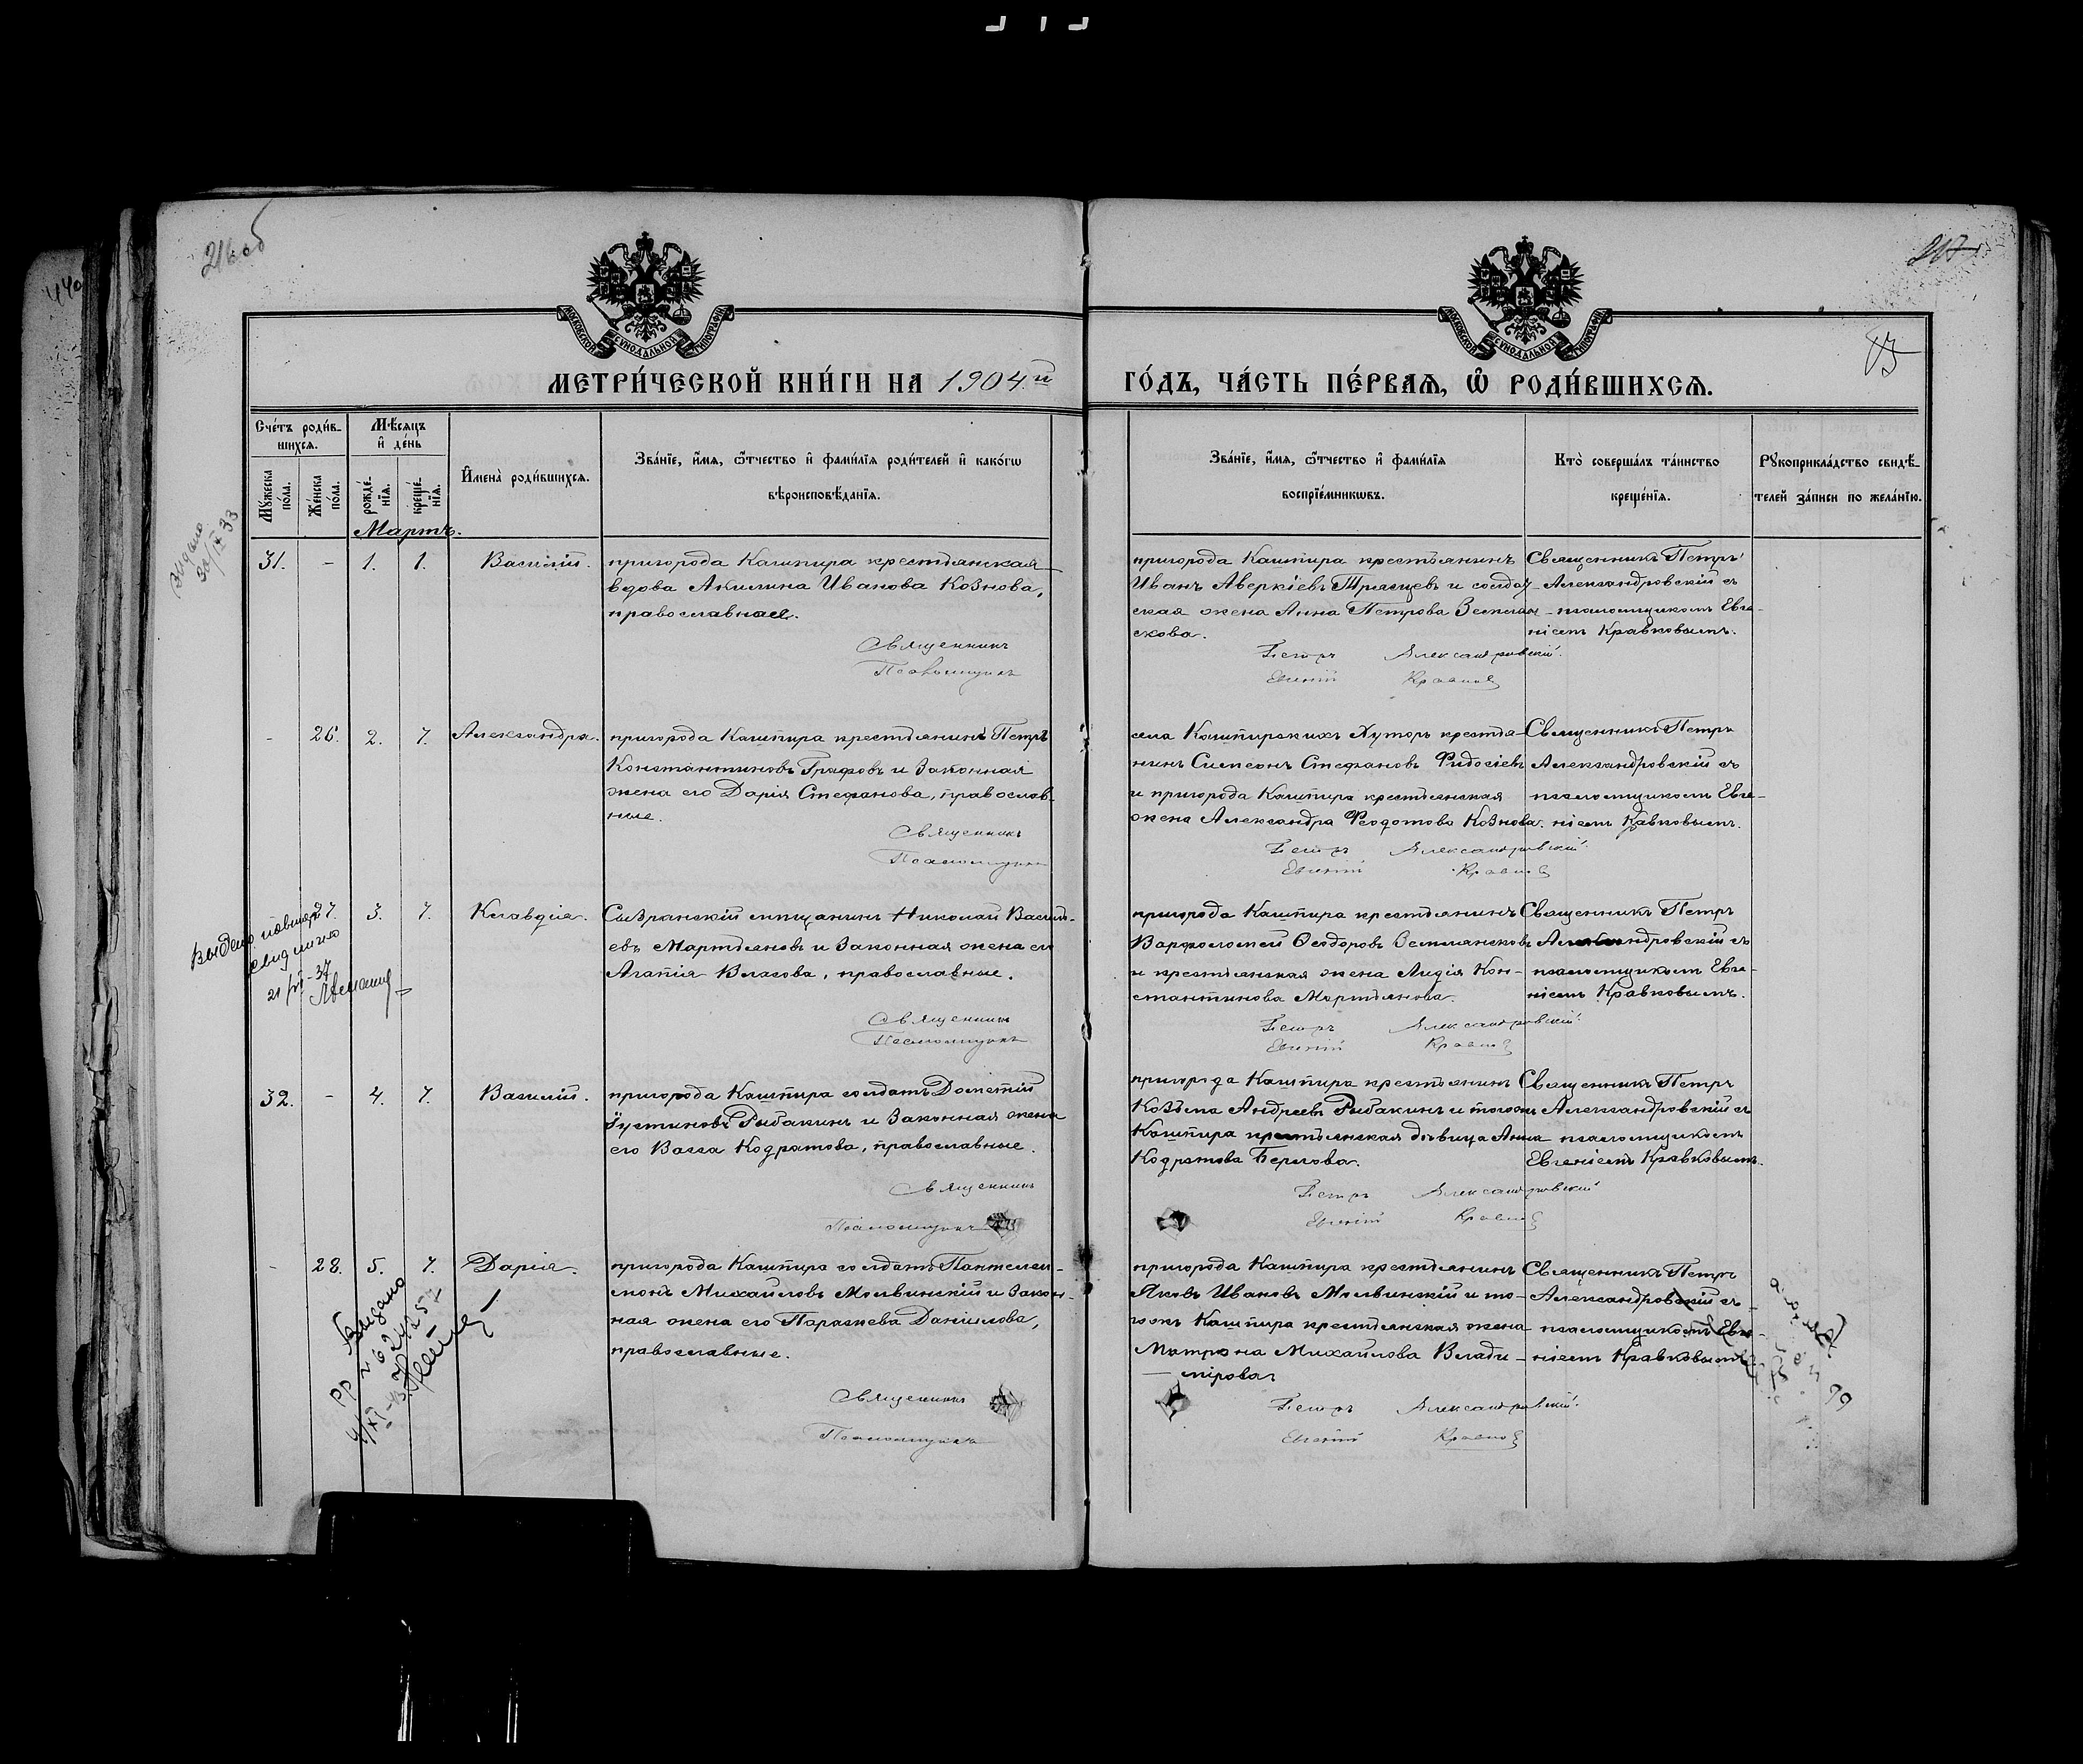 216 об
217
МОСКОВСКОЙ СУНОДАЛЬНОЙ ТИПОГРАФІИ
МОСКОВСКОЙ СУНОДАЛЬНОЙ ТИПОГРАФІИ
МЕТРИ́ЧЕСКОЙ КНИ́ГИ НА 1904.й
ГО́ДЪ, ЧА́СТЬ ПЕ́РВАЯ, Ѡ҆ РОДИ́ВШИХСЯ.
Сче́тъ роди́в-
шихся.
Мꙋ́жеска по́ла.
Же́нска по́ла.
Мѣ́сяцъ
и҆ де́нь
рожде́-
нїѧ.
креще́-
нїѧ.
И҆мена̀ роди́вшихся.
Зва́нїе, и҆́мѧ, ѻ҆́тчество и҆ фами́лїѧ роди́телей и҆ како́гѡ
вѣроисповѣ́данїѧ.
Зва́нїе, и҆́мѧ, ѻ҆́тчество и҆ фами́лїѧ
воспрїе́мникѡвъ.
Кто̀ соверша́лъ та́инство
креще́нїѧ.
Рꙋкоприкла́дство свидѣ́-
телей за́писи по жела́нїю.
Мартъ.
31. - 1. 1. Василій.
пригорода Кашпира крестьянская
вдова Акилина Иванова Кознова,
православная.
Священникъ
Псаломщикъ
пригорода Кашпира крестьянинъ
Иванъ Аверкіевъ и солдат-
ская жена Анна Петрова Землян-
скова.
Петръ Александровскій.
Евгеній Кравков
Священникъ Петръ
Александровскій съ
псаломщикомъ Евге-
ніемъ Кравковымъ.
- 26. 2. 7. Александра.
пригорода Кашпира крестьянинъ Петръ
Константиновъ Графовъ и законная
жена его Дарія Стефанова, православ-
ные.
Священникъ
Псаломщикъ
села Кашпирскихъ Хуторъ крестья-
нинъ Симеонъ Стефановъ
и пригорода Кашпира крестьянская
жена Александра Ѳеодотова Кознова.
Петръ Александровскій.
Евгеній Кравков
Священникъ Петръ
Александровскій съ
псаломщикомъ Евге-
ніемъ Кравковымъ.
27. 3. 7. Клавдія.
Сызранскій мѣщанинъ Николай Василь-
евъ Мартьяновъ и законная жена его
Агапія Власова, православные.
Священникъ
Псаломщикъ
пригорода Кашпира крестьянинъ
Варфоломей Ѳеодоровъ Землянсковъ
и крестьянская жена Лидія Кон-
стантинова Мартьянова.
Петръ Александровскій.
Евгеній Кравков
Священникъ Петръ
Александровскій съ
псаломщикомъ Евге-
ніемъ Кравковымъ.
32. - 4. 7. Василій.
пригорода Кашпира солдатъ Дометій
Іустиновъ Рыбакинъ и законная жена
его Васса Кодратова, православные.
Священникъ
Псаломщикъ
пригорода Кашпира крестьянинъ
Козьма Андреевъ Рыбакинъ и тогожъ
Кашпира крестьянская дѣвица Анна
Кодратова
Петръ Александровскій
Евгеній Кравков
Священникъ Петръ
Александровскій съ
псаломщикомъ
Евгеніемъ Кравковымъ.
- 28. 5. 7. Дарія.
пригорода Кашпира солдатъ Пантелеи-
монъ Михайловъ Мелвинскій и закон-
ная жена его Параскева Данилова,
православные.
Священникъ
Псаломщикъ
пригорода Кашпира крестьянинъ
Яковъ Ивановъ Мелвинскій и то-
гожъ Кашпира крестьянская жена
Матрона Михайлова Влади-
мірова.
Петръ Александровскій.
Евгеній Кравков
Священникъ Петръ
Александровскій съ
псаломщикомъ Евге-
ніемъ Кравковымъ
Выдано
30/IX 33
Выдано повторн
свид
21/VI-37
Выдано